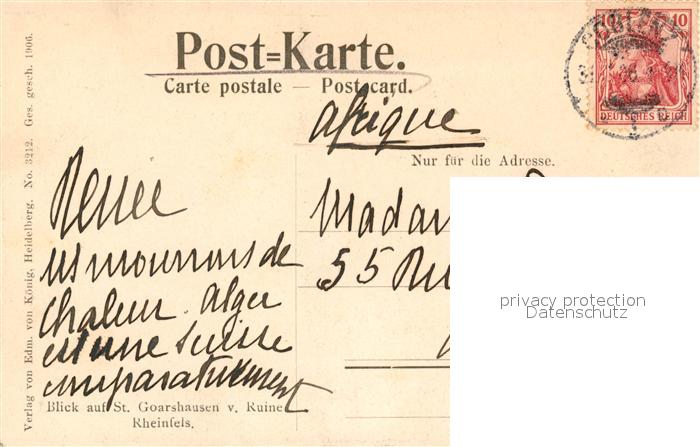 Post=Karte.
Carte postale — Postcard.
Afrique
Nur für die Adresse.
Madam
55 Ru
Renée
ns mourrons de
chaleur. Alger
est une Suisse
comparativement
Blick auf St. Goarshausen v. Ruine
Rheinfels.
Verlag von Edm. von König, Heidelberg. No. 3212. Ges. gesch. 1906.
10 10
DEUTSCHES REICH
privacy protection
Datenschutz